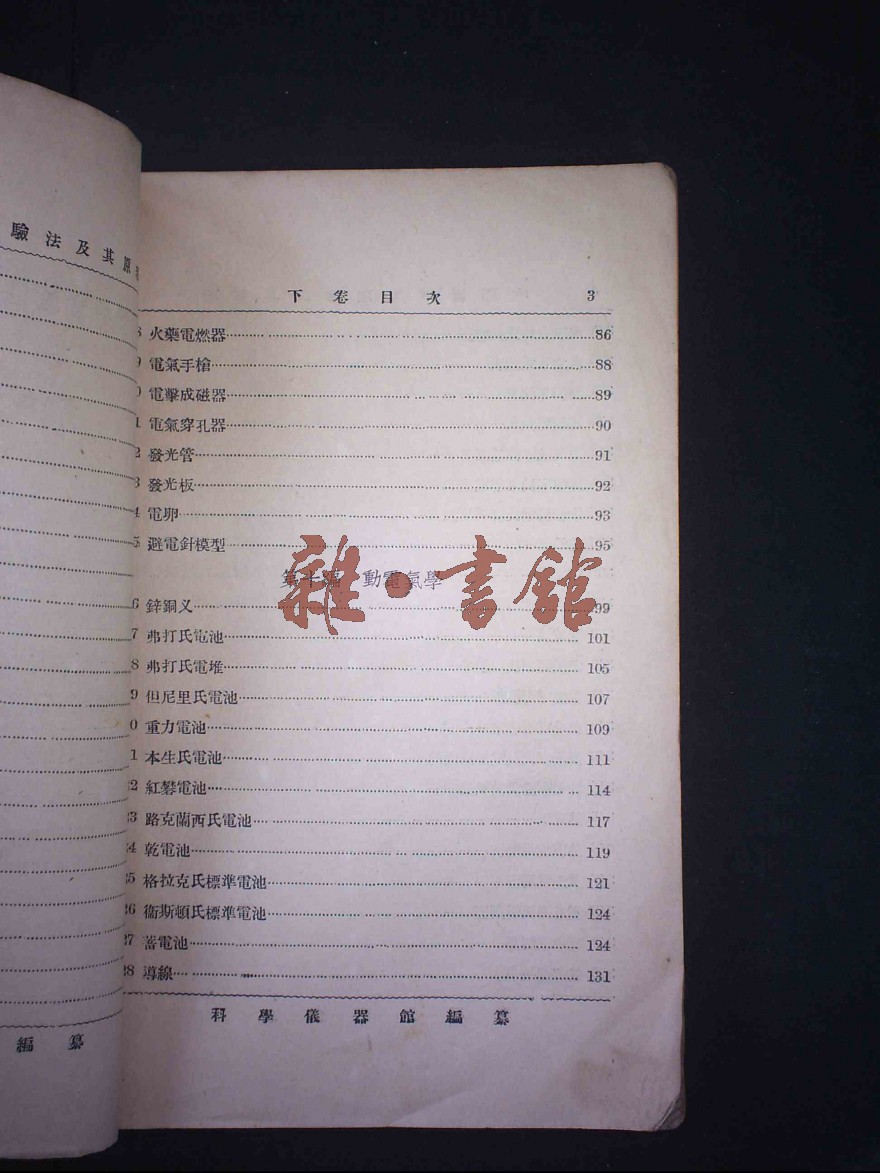 驗法及其原
編纂
下卷目次 3
火藥電燃器 86
9 電氣手槍 88
0 電擊成磁器 89
1 電氣穿孔器 90
2 發光管 91
3 發光板 92
4 電卵 93
5 避電針模型 95
第十編 動電氣學
6 鋅銅义 99
7 弗打氏電池 101
8 弗打氏電堆 105
9 但尼里氏電池 107
0 重力電池 109
1 本生氏電池 111
22 紅礬電池 114
23 路克蘭西氏電池 117
24 乾電池 119
25 格拉克氏標準電池 121
26 衞斯頓氏標準電池 124
27 蓄電池 124
28 導線 131
科學儀器館編纂
雜·書館